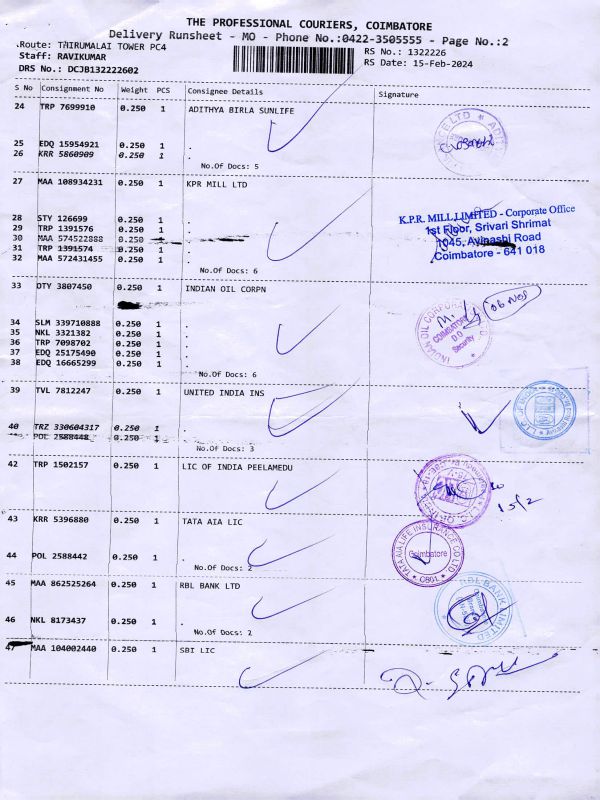 THE PROFESSIONAL COURIERS, COIMBATORE
Delivery Runsheet - MO - Phone No.:0422-3505555 - Page No.:2
Route: THIRUMALAI TOWER PC4
Staff: RAVIKUMAR
DRS No.: DCJB132222602
RS No.: 1322226
RS Date: 15-Feb-2024
S No Consignment No Weight PCS Consignee Details Signature
24 TRP 7699910 0.250 1 ADITHYA BIRLA SUNLIFE
25 EDQ 15954921 0.250 1 .
26 KRR 5860909 0.250 1 .
No.Of Docs: 5
27 MAA 108934231 0.250 1 KPR MILL LTD
K.P.R. MILL LIMITED - Corporate Office
1st Floor, Srivari Shrimat
1045, Avinashi Road
Coimbatore - 641 018
28 STY 126699 0.250 1 .
29 TRP 1391576 0.250 1 .
30 MAA 574522888 0.250 1 .
31 TRP 1391574 0.250 1 .
32 MAA 572431455 0.250 1 .
No.Of Docs: 6
33 DTY 3807450 0.250 1 INDIAN OIL CORPN
INDIAN OIL CORPORA
COIMBATORE
D O
Security
06 Nos
34 SLM 339710888 0.250 1 .
35 NKL 3321382 0.250 1 .
36 TRP 7098702 0.250 1 .
37 EDQ 25175490 0.250 1 .
38 EDQ 16665299 0.250 1 .
No.Of Docs: 6
39 TVL 7812247 0.250 1 UNITED INDIA INS
40 TRZ 330604317 0.250 1 .
POL 2588448 0.250 1 .
No.Of Docs: 3
42 TRP 1502157 0.250 1 LIC OF INDIA PEELAMEDU
15/2
43 KRR 5396880 0.250 1 TATA AIA LIC
TATA AIA LIFE INSURANCE CO LTD
Coimbatore
* C801 *
44 POL 2588442 0.250 1 .
No.Of Docs: 2
45 MAA 862525264 0.250 1 RBL BANK LTD
RBL BANK LIMITED
46 NKL 8173437 0.250 1 .
No.Of Docs: 2
47 MAA 104002440 0.250 1 SBI LIC